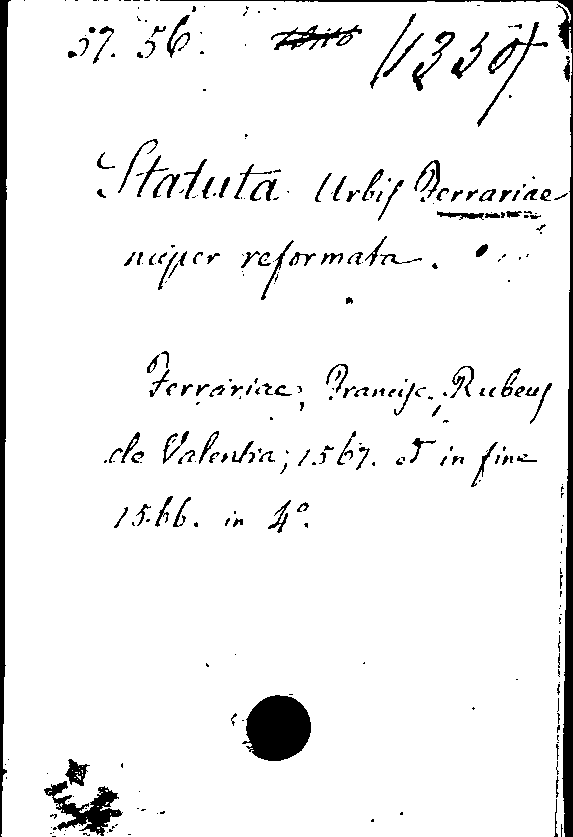 57. 56. 1350
Statuta Urbis Ferrariae
nuper reformata.
Ferrariae, Francisc. Rubeus
de Valentia; 1567. et in fine
1566. in 4º.